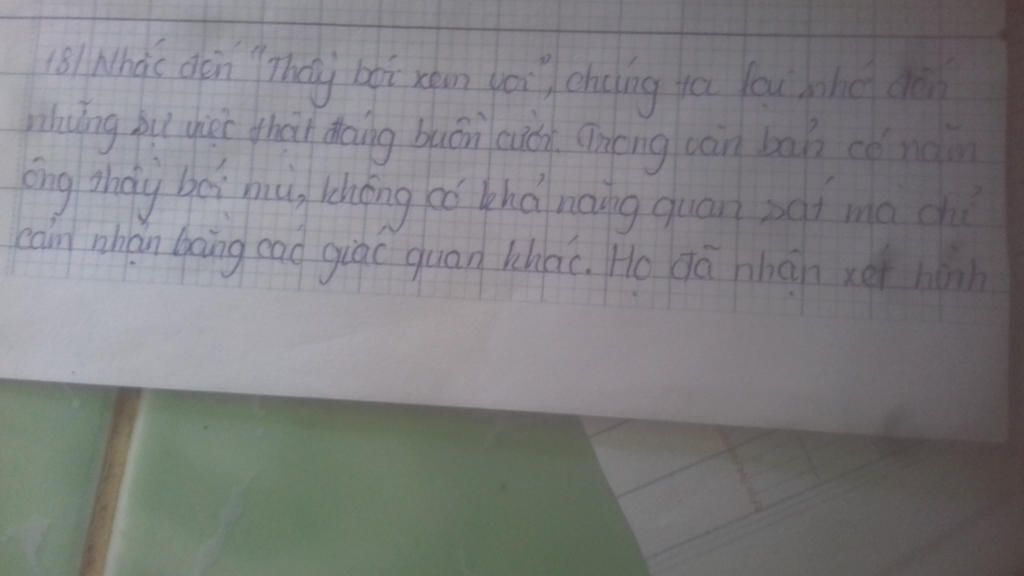 18/ Nhắc đến "Thầy bói xem voi", chúng ta lại nhớ đến
những sự việc thật đáng buồn cười. Trong văn bản có năm
ông thầy bói mù, không có khả năng quan sát mà chỉ
cảm nhận bằng các giác quan khác. Họ đã nhận xét hình